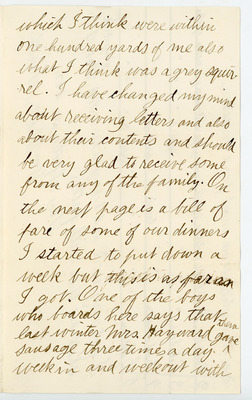 which I think were within
one hundred yards of me also
what I think was a grey squir-
rel. I have changed my mind
about receiving letters and also
about their contents and should
be very glad to receive some
from any of the family. On
the next page is a bill of
fare of some of our dinners
I started to put down a
week but this is as far as
I got. One of the boys
who boards here says that
last winter Mrs. Hayward gave them
sausage three times a day.
week in and week out with